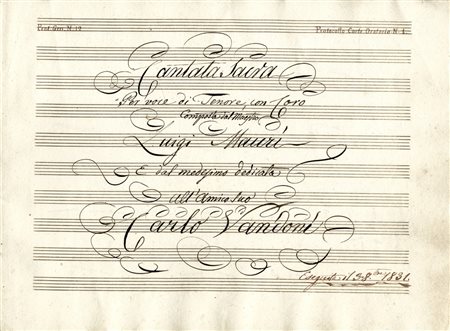 Prot. Gen. N. 12
Protocollo Carte Oratorio N. 4.
Cantata Sacra
Per voce di Tenore con Coro
Composta dal Maestro
Luigi Mauri
E dal medesimo dedicata
all'Amico suo
Carlo Vandoni
Eseguita il 3 8bre 1831.